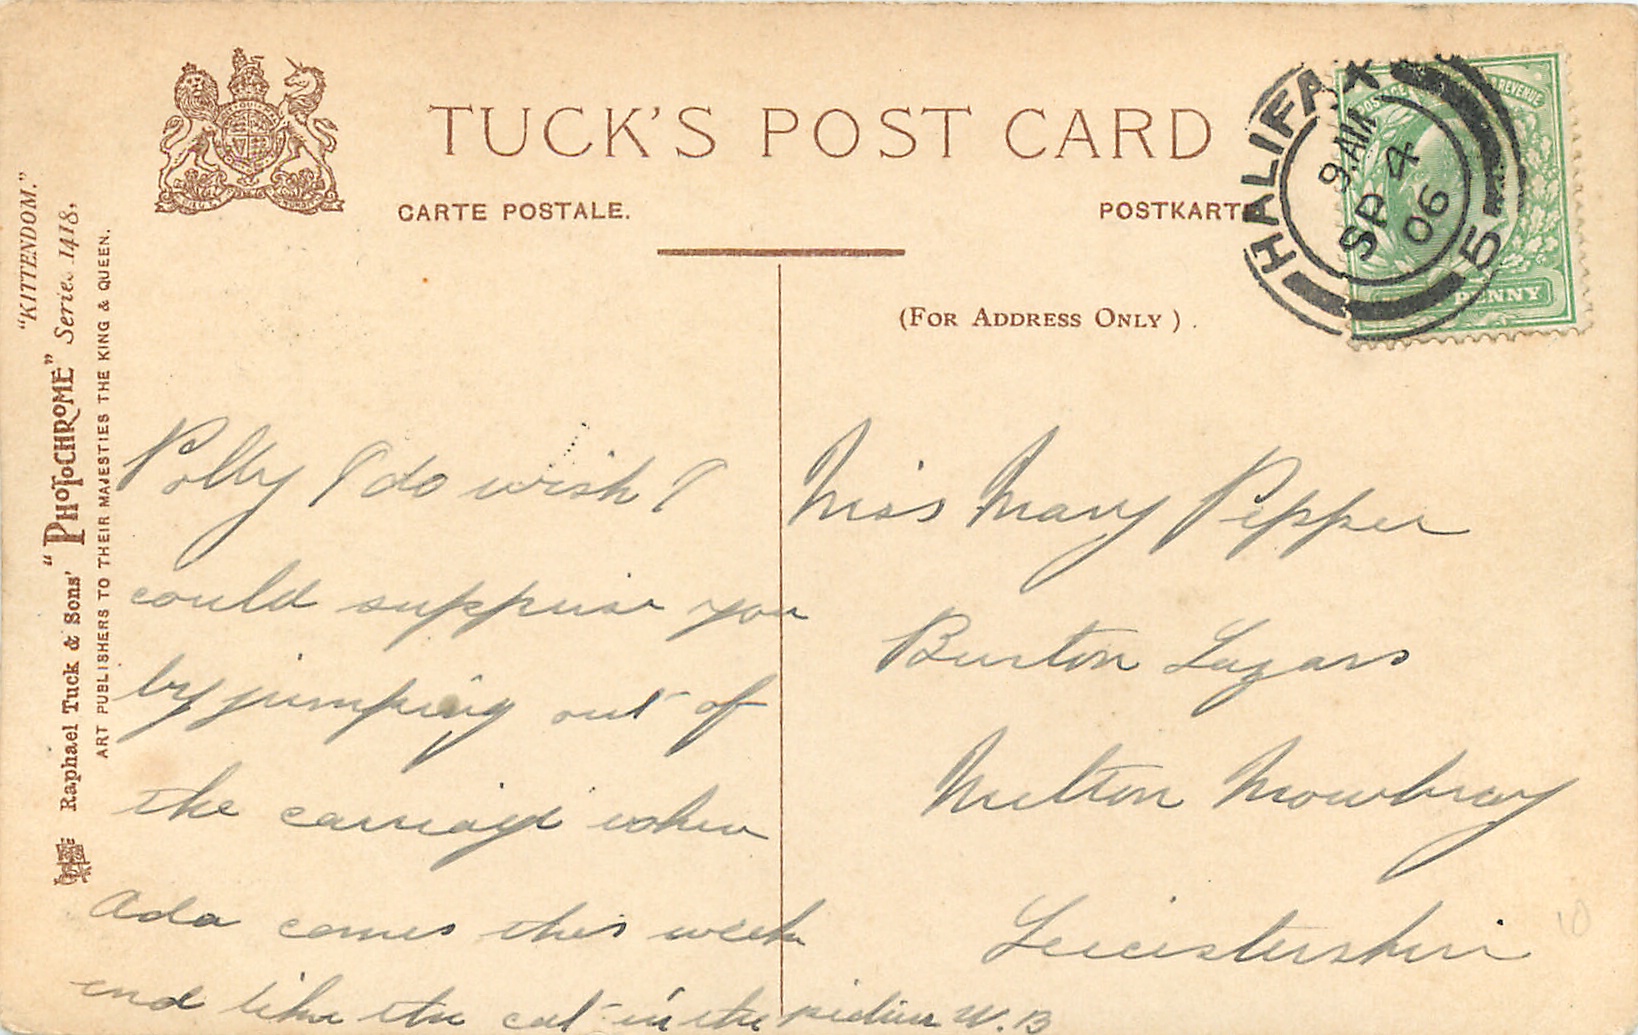 TUCK'S POST CARD
CARTE POSTALE.
POSTKARTE
(FOR ADDRESS ONLY).
"KITTENDOM."
Raphael Tuck & Sons' "PHOTOCHROME" Series 1418,
ART PUBLISHERS TO THEIR MAJESTIES THE KING & QUEEN.
HALIFAX
9 AM
SP 4
06
5
POSTAGE REVENUE
PENNY
Polly I do wish I
could supprise you
by jumping out of
the carriage when
Ada comes this week
end like the cat in the picture W.B
Miss Mary Pepper
Burton Lazars
Melton Mowbray
Leicestershire
10